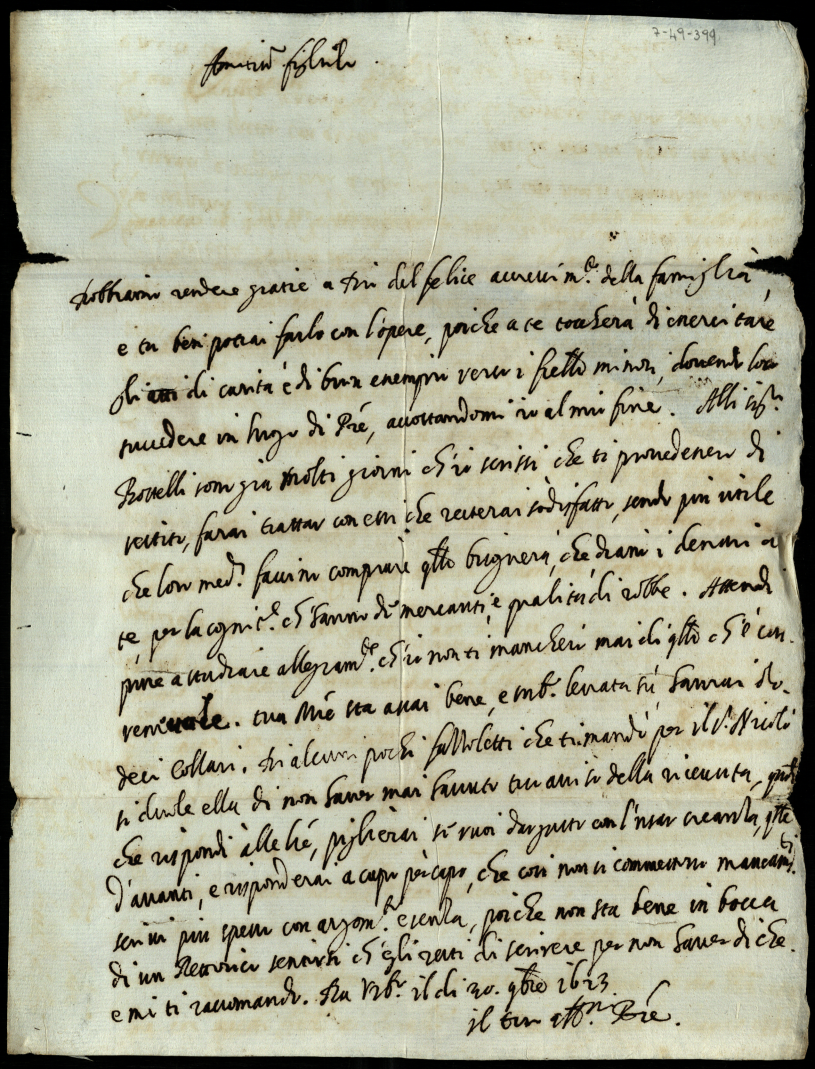 7-49-399
Amatiss.º figliolo
Dobbiamo rendere gratie a Dio del felice accrescim.to della famiglia,
e tu ben potrai farlo con l'opere, poiche a te toccherà di essercitare
gli atti di carità e di buon essempio verso i frelli minori, dovendo loro
succedere in luogo di Pře, accostandomi io al mio fine. Alli sig.ri
Rosselli sono già molti giorni ch'io scrissi che ti provedessero di
vestito, farai trattar con essi che resterai sodisfatto, sendo piu utile
che loro med.i faccino comprare qllo bisognera, che diano i denari a
te, per la cognit.e ch'hanno de mercanti, e qualità di robbe. Attendi
pure a studiare allegram.te ch'io non ti manchero mai di qllo ch'è con-
venevole. tua Mře sta assai bene, e sub.o levata sù havrai do-
deci collari. Di alcuni pochi fazzoletti che ti mandò per il S.r Nicolò
si duole ella di non haver mai havuto tuo aviso della ricevuta,
che rispondi alle lřé, piglierai se vuoi dar gusto con l'usar creanza, qlle
d'avanti, e risponderai a capo per capo, che cosi non si commettono mancam.ti
scrivi piu spesso con argom.to e senza, poiche non sta bene in bocca
di un Rettorico sentirsi ch'egli resti di scrivere per non haver di che.
e mi ti raccomando. Da Urb.o il di 30. 9bře 1623.
il tuo aff.mo Pře.